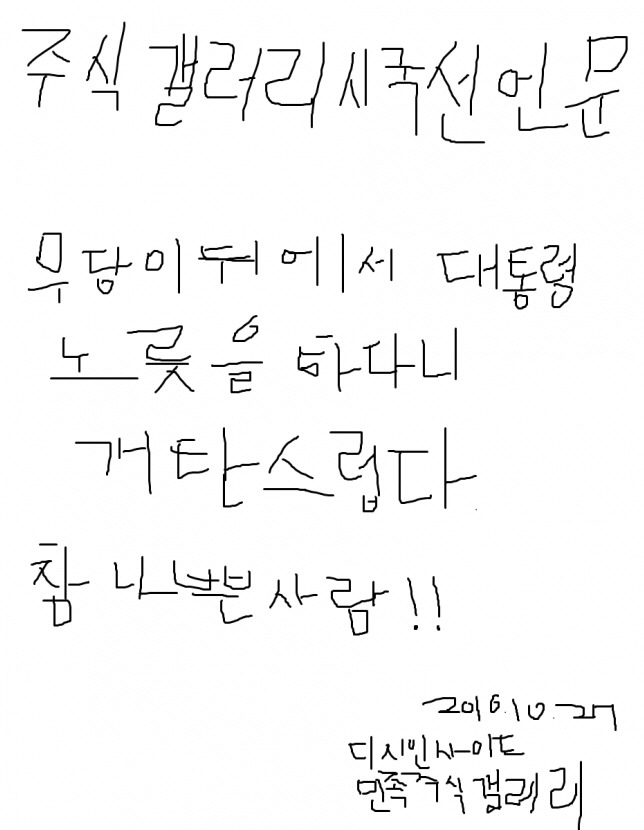 주식갤러리시국선언문
무당이 뒤에서 대통령
노릇을 하다니
개탄스럽다
참 나쁜사람!!
2016.10.27
디시인사이드
민족주식갤러리